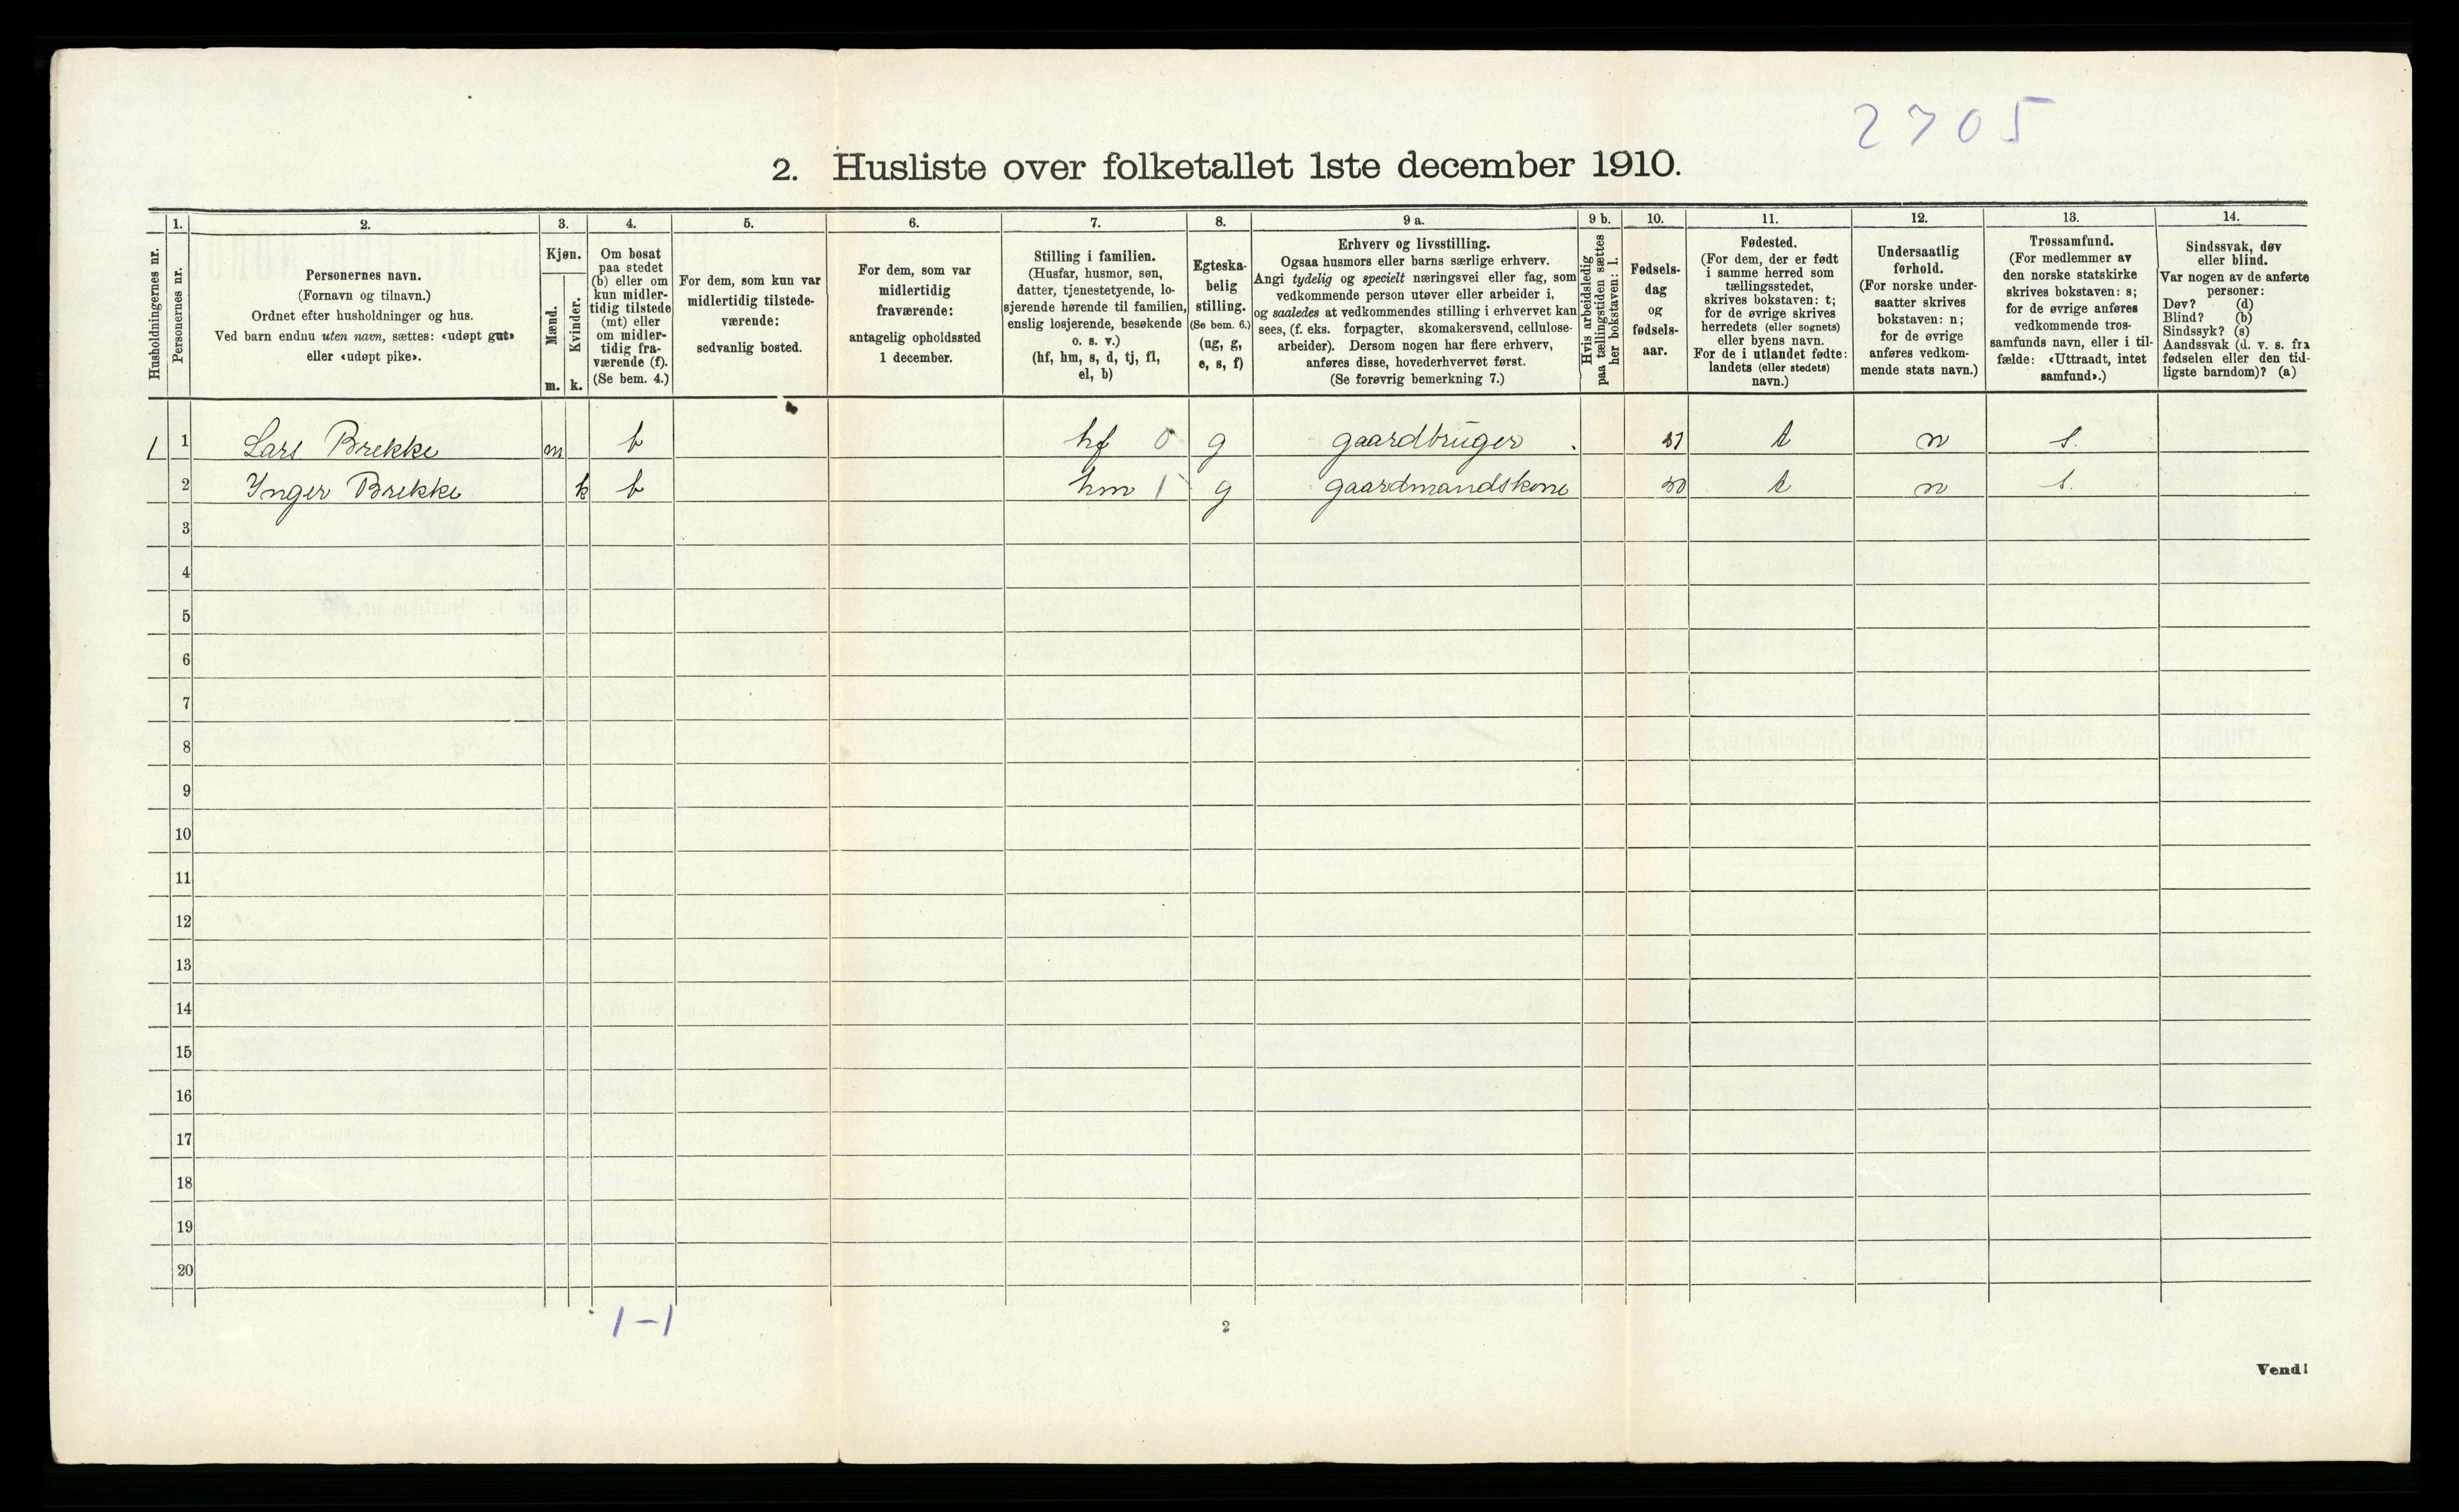 2705
2. Husliste over folketallet 1ste december 1910.
Husholdningernes nr.
1.
Personernes nr.
2.
Personernes navn.
(Fornavn og tilnavn.)
Ordnet efter husholdninger og hus.
Ved barn endnu uten navn, sættes: «udøpt gut»
eller «udøpt pike».
3.
Kjøn.
Mænd.
m.
Kvinder.
k.
4.
Om bosat
paa stedet
(b) eller om
kun midler-
tidig tilstede
(mt) eller
om midler-
tidig fra-
værende (f).
(Se bem. 4.)
5.
For dem, som kun var
midlertidig tilstede-
værende:
sedvanlig bosted.
6.
For dem, som var
midlertidig
fraværende:
antagelig opholdssted
1 december.
7.
Stilling i familien.
(Husfar, husmor, søn,
datter, tjenestetyende, lo-
sjerende hørende til familien,
enslig losjerende, besøkende
o. s. v.)
(hf, hm, s, d, tj, fl,
el, b)
8.
Egteska-
belig
stilling.
(Se bem. 6.)
(ug, g,
e, s, f)
9 a.
Erhverv og livsstilling.
Ogsaa husmors eller barns særlige erhverv.
Angi tydelig og specielt næringsvei eller fag, som
vedkommende person utøver eller arbeider i,
og saaledes at vedkommendes stilling i erhvervet kan
sees, (f. eks. forpagter, skomakersvend, cellulose-
arbeider). Dersom nogen har flere erhverv,
anføres disse, hovederhvervet først.
(Se forøvrig bemerkning 7.)
9 b.
Hvis arbeidsledig
paa tællingstiden sættes
her bokstaven: l.
10.
Fødsels-
dag
og
fødsels-
aar.
11.
Fødested.
(For dem, der er født
i samme herred som
tællingsstedet,
skrives bokstaven: t;
for de øvrige skrives
herredets (eller sognets)
eller byens navn.
For de i utlandet fødte:
landets (eller stedets)
navn.)
12.
Undersaatlig
forhold.
(For norske under-
saatter skrives
bokstaven: n;
for de øvrige
anføres vedkom-
mende stats navn.)
13.
Trossamfund.
(For medlemmer av
den norske statskirke
skrives bokstaven: s;
for de øvrige anføres
vedkommende tros-
samfunds navn, eller i til-
fælde: «Uttraadt, intet
samfund».)
14.
Sindssvak, døv
eller blind.
Var nogen av de anførte
personer:
Døv? (d)
Blind? (b)
Sindssyk? (s)
Aandssvak (d. v. s. fra
fødselen eller den tid-
ligste barndom)? (a)
1 1 Lars Brekke m b hf 0 g gaardbruger t n s.
2 Inger Brekke k b hm 1 g gaardmandskone t n s.
3
4
5
6
7
8
9
10
11
12
13
14
15
16
17
18
19
20
1-1
2
Vend!